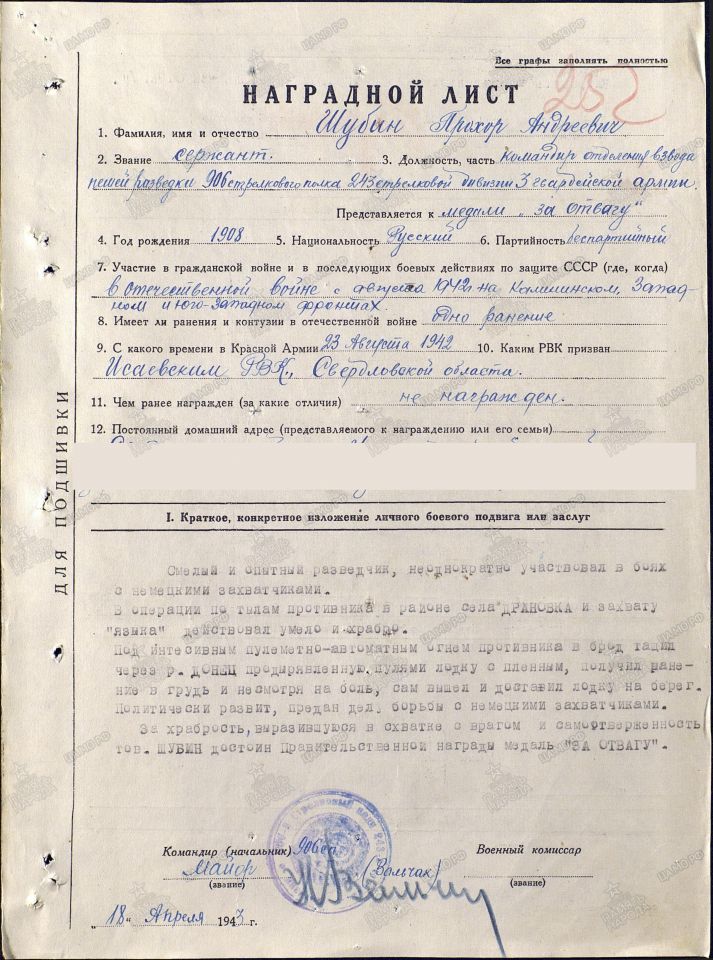 Все графы заполнять полностью
252
НАГРАДНОЙ ЛИСТ
1. Фамилия, имя и отчество Шубин Прохор Андреевич
2. Звание сержант. 3. Должность, часть командир отделения взвода
пешей разведки 906 стрелкового полка 243 стрелковой дивизии 3 гвардейской армии.
Представляется к медали „за отвагу"
4. Год рождения 1908 5. Национальность Русский 6. Партийность беспартийный
7. Участие в гражданской войне и в последующих боевых действиях по защите СССР (где, когда)
в отечественной войне с августа 1942 на Калининском, Запад-
ном и юго-западном фронтах.
8. Имеет ли ранения и контузии в отечественной войне одно ранение
9. С какого времени в Красной Армии 23 Августа 1942 10. Каким РВК призван
Исаевским РВК., Свердловской области.
11. Чем ранее награжден (за какие отличия) не награжден.
12. Постоянный домашний адрес (представляемого к награждению или его семьи)
I. Краткое, конкретное изложение личного боевого подвига или заслуг
Смелый и опытный разведчик, неоднократно участвовал в боях
с немецкими захватчиками.
В операции по тылам противника в районе села ДРАНОВКА и захвату
"языка" действовал умело и храбро.
Под интесивным пулеметно-автоматным огнем противника в брод тащил
через р. ДОНЕЦ продырявленную пулями лодку с пленным, получил ране-
ние в грудь и несмотря на боль, сам вышел и доставил лодку на берег.
Политически развит, предан делу борьбы с немецкими захватчиками.
За храбрость, выразившуюся в схватке с врагом и самотверженность
тов. ШУБИН достоин Правительственной награды медаль "ЗА ОТВАГУ".
Командир (начальник) 906сп Военный комиссар
Майор (Вольчак)
(звание) (звание)
„18" Апреля 1943 г.
ДЛЯ ПОДШИВКИ
ЦАМО РФ